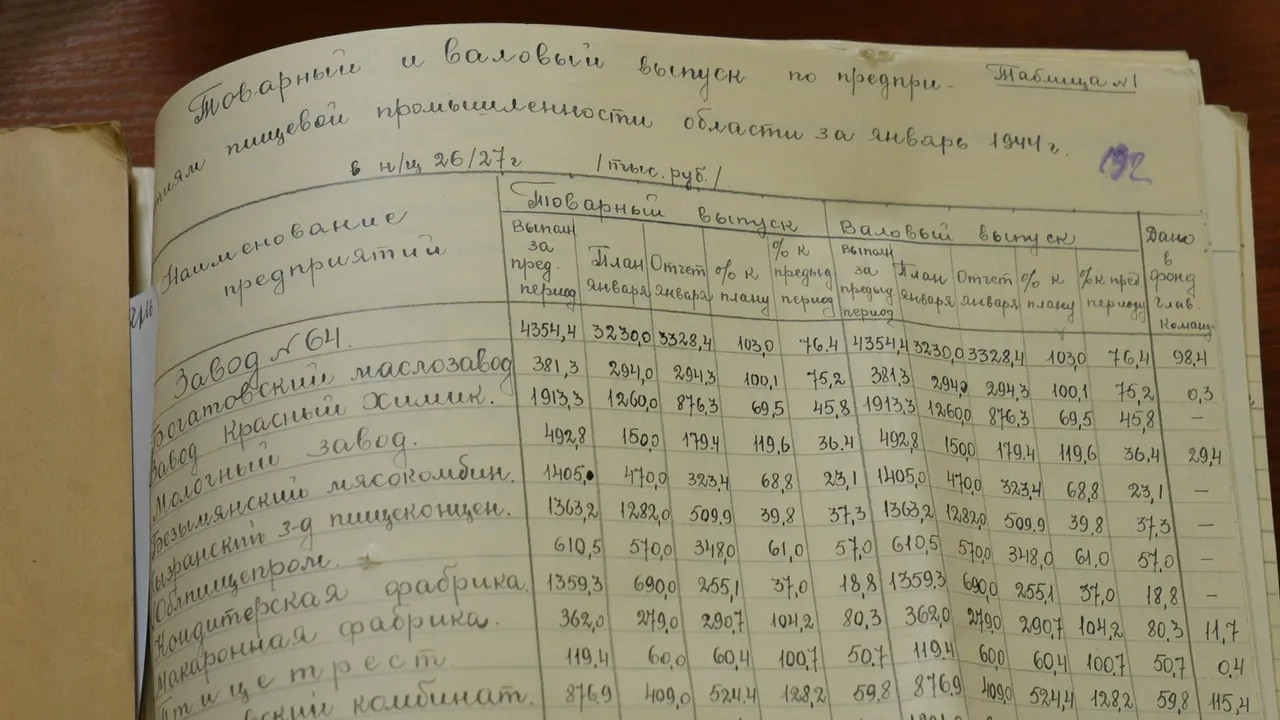 Товарный и валовый выпуск по предпри- Таблица №1
тиям пищевой промышленности области за январь 1944 г.
192
в н/ц 26/27 г /тыс. руб./
Наименование предприятий Товарный выпуск Валовый выпуск Дано в фонд глав. команд.
Выполн за пред. период План января Отчет января % к плану % к предыд период Выполн за предыд период План января Отчет января % к плану % к пред периоду
Завод №64. 4354,4 3230,0 3328,4 103,0 76.4 4354,4 3230,0 3328,4 103,0 76,4 98.4
Богатовский маслозавод 381,3 294,0 294,3 100,1 75,2 381,3 294,0 294,3 100,1 75,2 0,3
Завод Красный Химик. 1913,3 1260,0 876,3 69,5 45,8 1913,3 1260,0 876,3 69,5 45,8 –
Молочный завод. 492,8 150,0 179.4 119,6 36.4 492,8 150,0 179.4 119,6 36,4 29,4
Безымянский мясокомбин. 1405,0 470,0 323,4 68,8 23,1 1405,0 470,0 323,4 68,8 23,1 –
ызранский з-д пищеконцен. 1363,2 1282,0 509,9 39,8 37,3 1363,2 1282,0 509,9 39,8 37,3 –
Облпищепром. 610,5 570,0 348,0 61,0 57,0 610,5 570,0 348,0 61,0 57,0 –
Кондитерская фабрика. 1359,3 690,0 255,1 37,0 18,8 1359,3 690,0 255,1 37,0 18,8 –
Макаронная фабрика. 362,0 279,0 290,7 104,2 80,3 362,0 279,0 290,7 104,2 80,3 11,7
Птицетрест 119,4 60,0 60,4 100,7 50.7 119.4 60,0 60,4 100,7 50,7 0.4
вский комбинат. 876,9 409,0 524,4 128,2 59,8 876,9 409,0 524,4 128,2 59,8 115,4